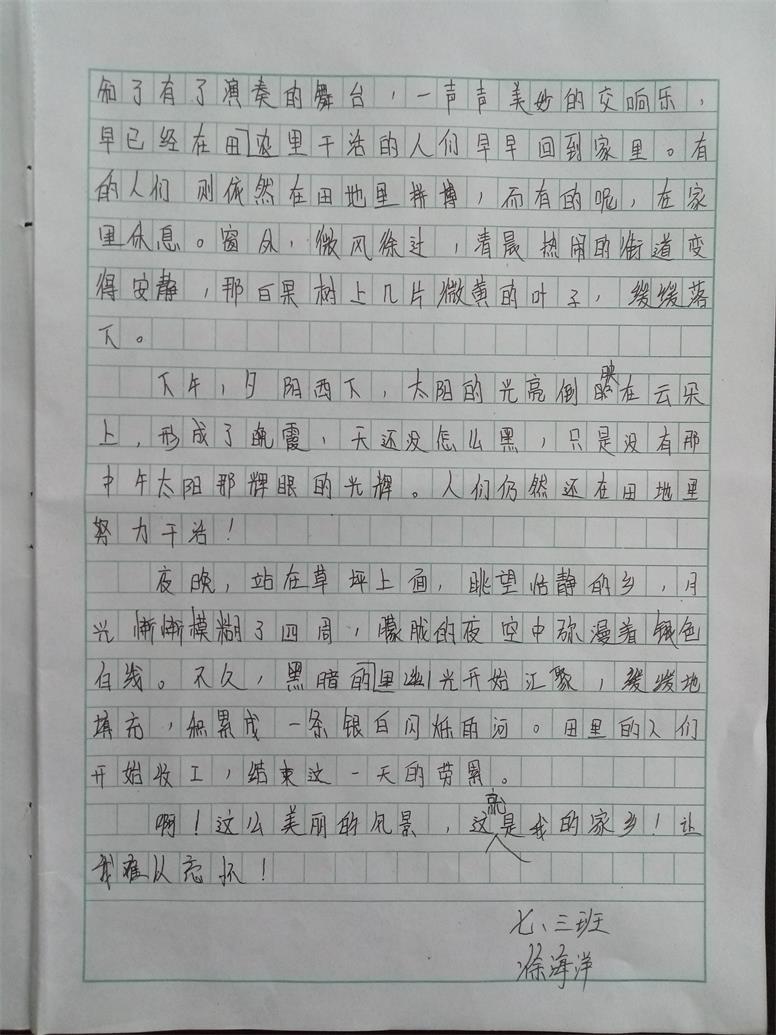 知了有了演奏的舞台，一声声美妙的交响乐，
早已经在田这里干活的人们早早回到家里。有
的人们则依然在田地里拼搏，而有的呢，在家
里休息。窗外，微风徐过，清晨热闹的街道变
得安静，那白果树上几片微黄的叶子，缓缓落
下。
下午，夕阳西下，太阳的光亮倒映在云朵
上，形成了晚霞，天还没怎么黑，只是没有那
中午太阳那辉眼的光辉。人们仍然还在田地里
努力干活！
夜晚，站在草坪上面，眺望恬静的乡，月
光渐渐模糊了四周，朦胧的夜空中弥漫着银色
白线。不久，黑暗的里幽光开始汇聚，缓缓地
填充，积累成一条银白闪烁的河。田里的人们
开始收工，结束这一天的劳累。
啊！这么美丽的风景，这就是我的家乡！让
我难以忘怀！
七、三班
徐海洋